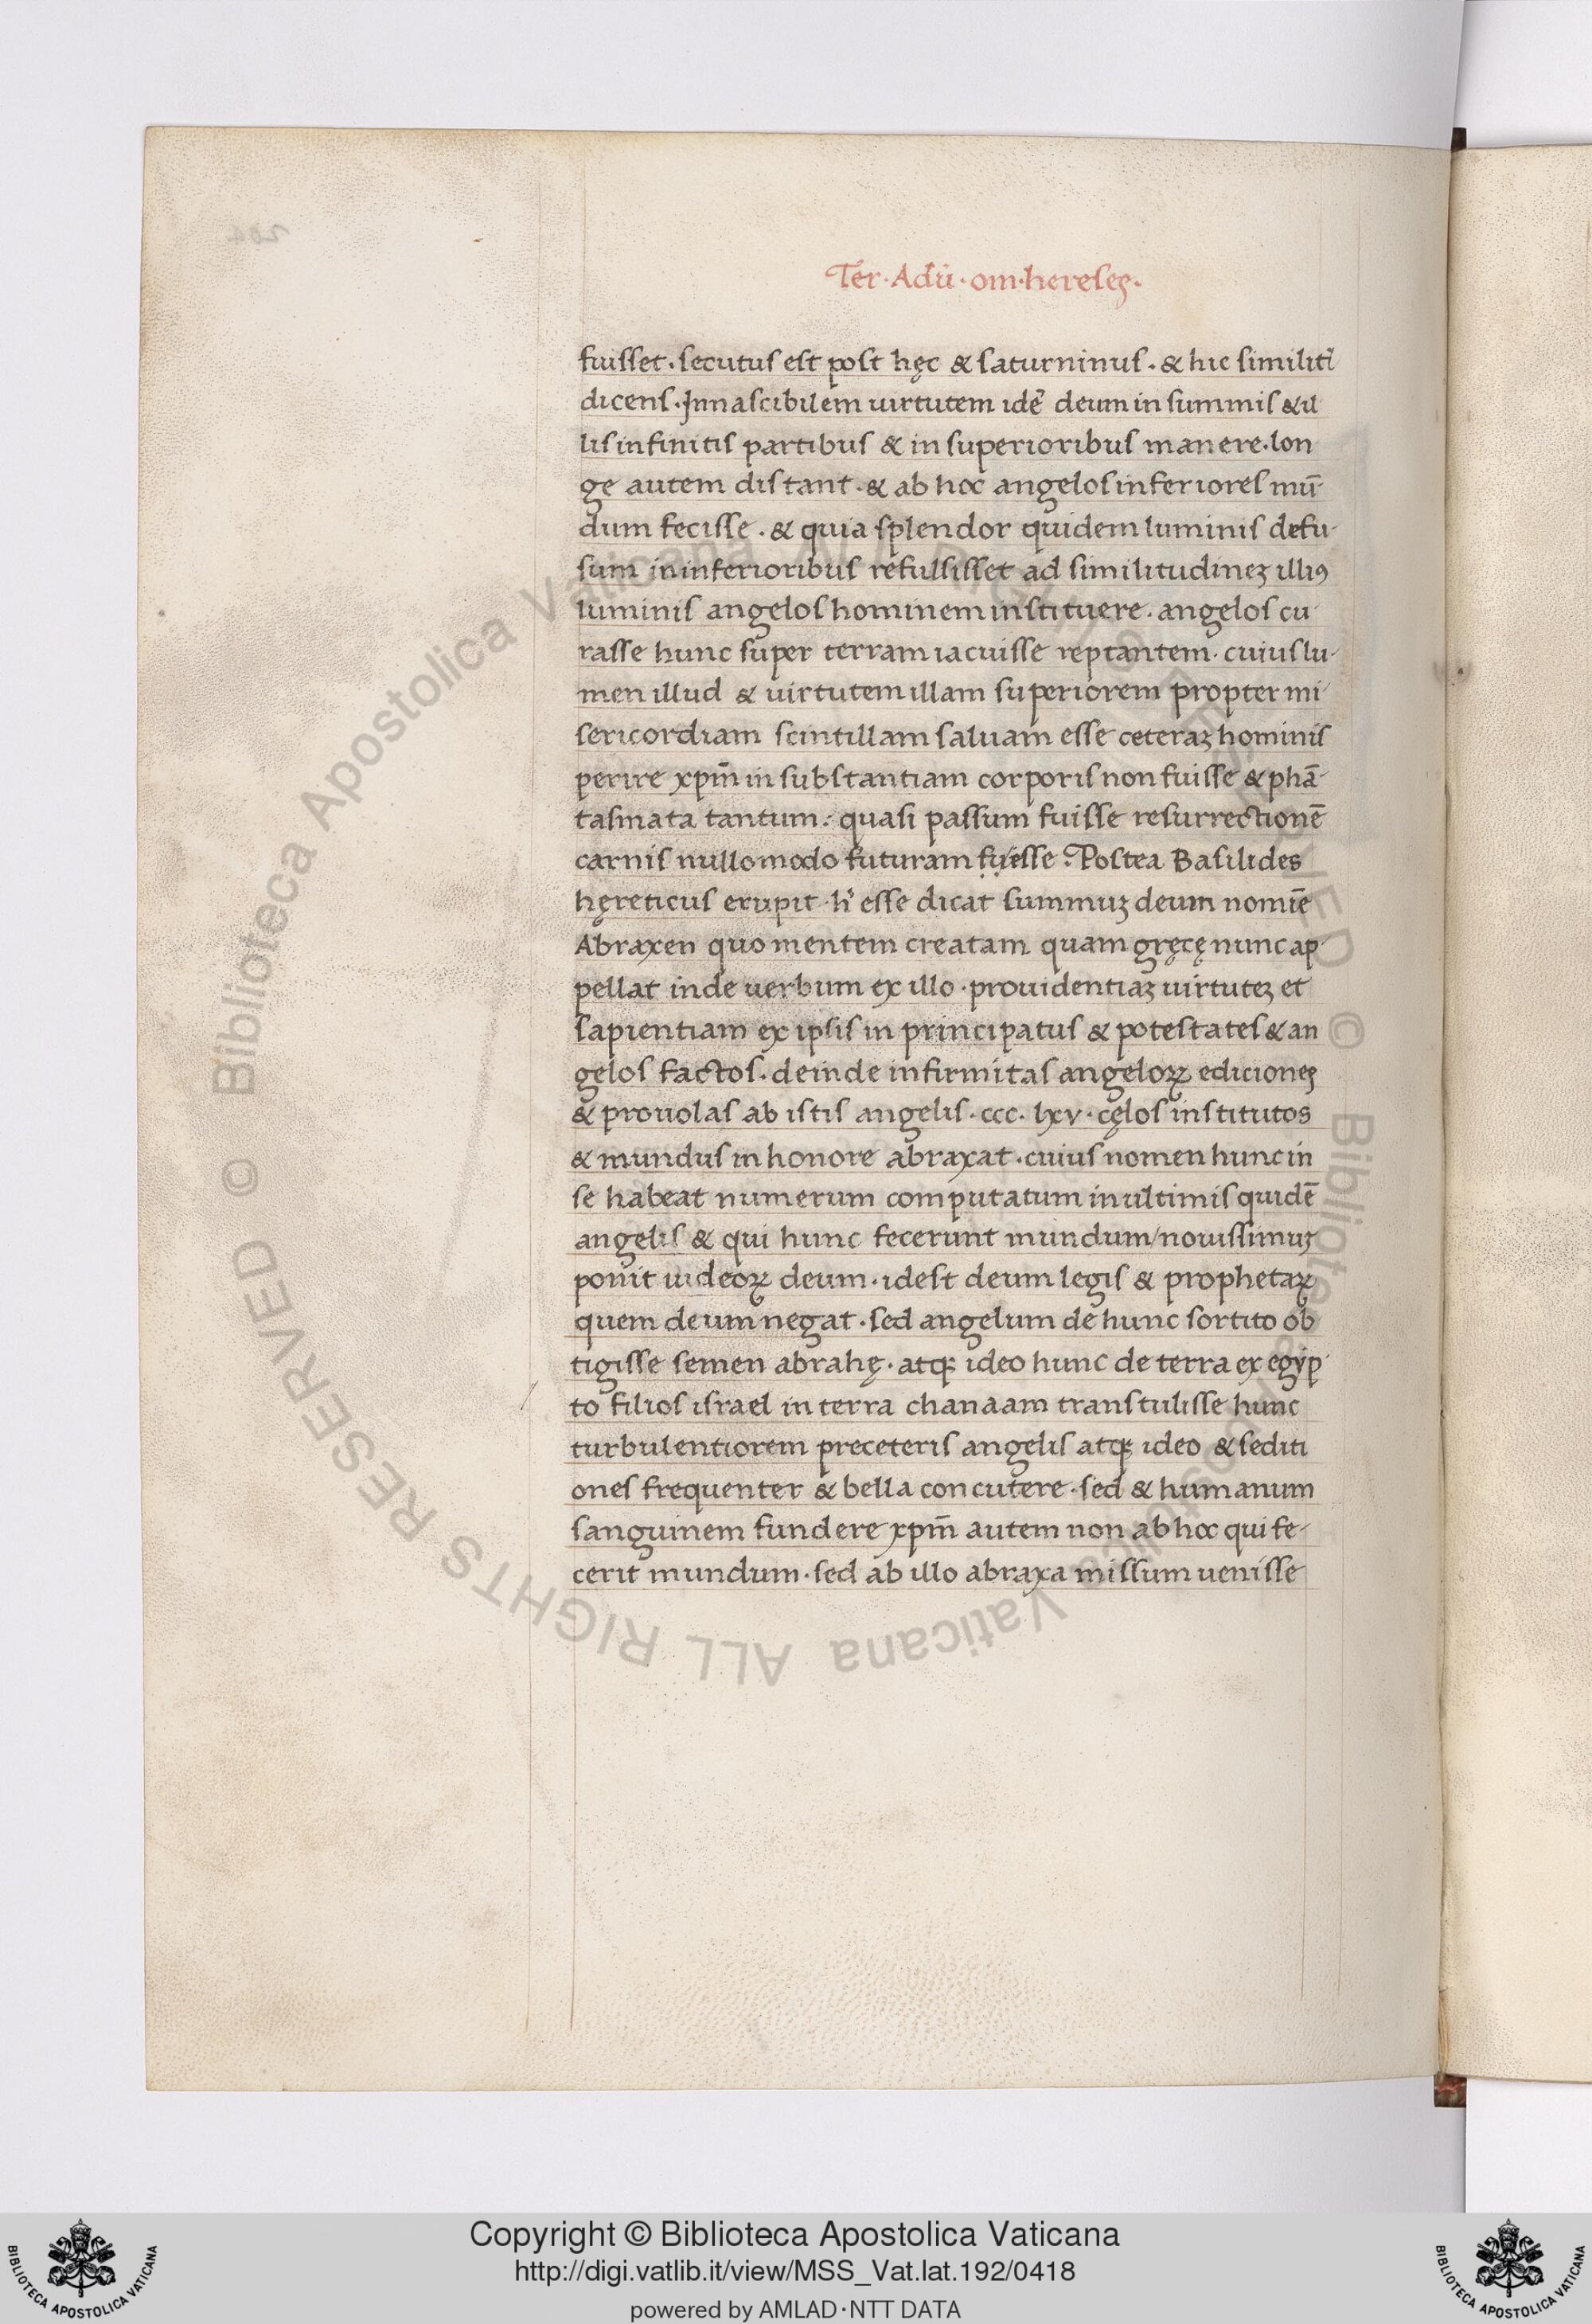 Ter·Adū·om·hereseʒ·
fuisset·secutus est post hęc & saturninus·& hic similitᷣ
dicens·Innascibilem uirtutem idē deum in summis & il
lis infinitis partibus & in superioribus manere·lon
ge autem distant·& ab hoc angelos inferiores mū-
dum fecisse·& quia splendor quidem luminis defu-
sum in inferioribus refulsisset ad similitudineʒ illiꝰ
luminis angelos hominem instituere·angelos cu
rasse hunc super terram iacuisse reptantem·cuius lu-
men illud & uirtutem illam superiorem propter mi-
sericordiam scintillam saluam esse ceteraʒ hominis
perire xpm̄ in substantiam corporis non fuisse & phā-
tasmata tantum·quasi passum fuisse resurrectionē
carnis nullo modo futuram fuisse·Postea Basilides
hęreticus erupit·h' esse dicat summuʒ deum nomīe
Abraxen quo mentem creatam quam gręcę nunc ap-
pellat inde uerbum ex illo·prouidentiaʒ uirtuteʒ et
sapientiam ex ipsis in principatus & potestates & an
gelos factos·deinde infirmitas angeloꝝ edicioneʒ
& prouolas ab istis angelis·ccc·lxv·cęlos institutos
& mundus in honore abraxat·cuius nomen hunc in
se habeat numerum computatum in ultimis quidē
angelis & qui hunc fecerunt mundum/nouissimuʒ
ponit iudeoꝝ deum·idest deum legis & prophetaꝝ
quem deum negat·sed angelum de hunc sortito ob
tigisse semen abrahę·atqʒ ideo hunc de terra ex egyp-
to filios israel in terra chanaam transtulisse hunc
turbulentiorem preceteris angelis atqʒ ideo & sediti
ones frequenter & bella concutere·sed & humanum
sanguinem fundere xpm̄ autem non ab hoc qui fe-
cerit mundum·sed ab illo abraxa missum uenisse
Biblioteca Apostolica Vaticana ALL RIGHTS RESERVED © Biblioteca Apostolica Vaticana ALL RIGHTS RESERVED ©
Copyright © Biblioteca Apostolica Vaticana
http://digi.vatlib.it/view/MSS_Vat.lat.192/0418
powered by AMLAD·NTT DATA
BIBLIOTECA APOSTOLICA VATICANA
BIBLIOTECA APOSTOLICA VATICANA